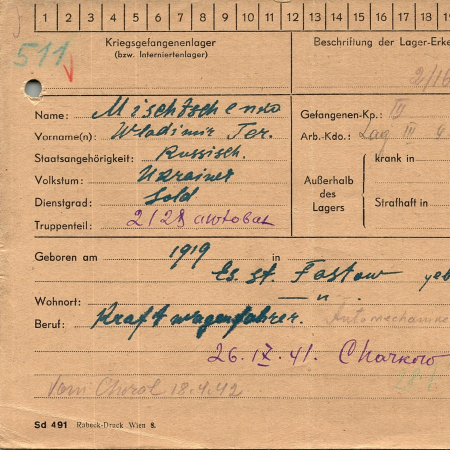 1 2 3 4 5 6 7 8 9 10 11 12 13 14 15 16 17 18 19
511
Kriegsgefangenenlager
(bzw. Interniertenlager)
Beschriftung der Lager-Erke
Name: Mischtschenko
Vorname(n): Wladimir Ter.
Staatsangehörigkeit: Russisch.
Volkstum: Ukrainer
Dienstgrad: Sold
Truppenteil: 2/28 awtobat
Gefangenen-Kp.: IV
Arb.-Kdo.: Lag III
Außerhalb des Lagers
krank in
Strafhaft in
Geboren am 1919 in Es. st. Fastow geb
Wohnort: — " .
Beruf: Kraftwagenfahrer. Automechanike
26.IX.41. Charkow
Vom Chorol 18.4.42
Sd 491 Robeck-Druck Wien 8.